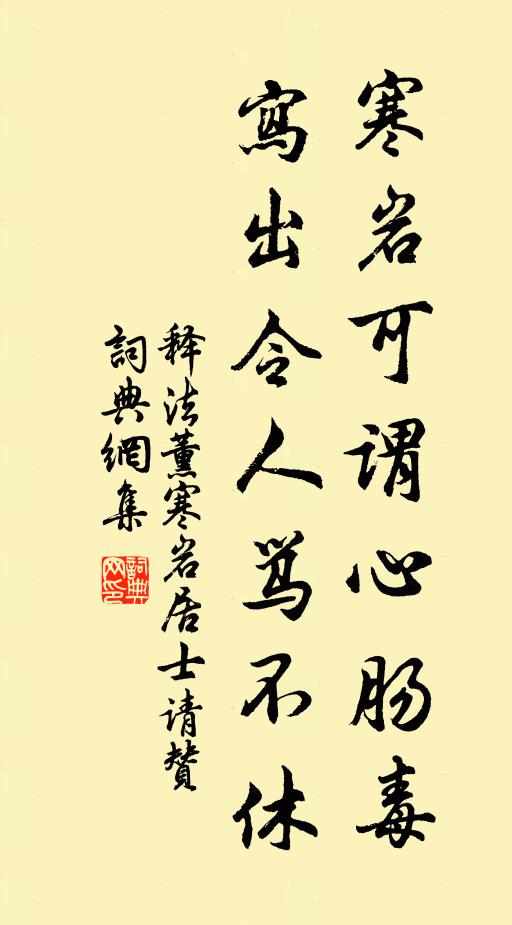 寒岩可谓心肠毒
寫出令人骂不休
释法薰寒岩居士请赞
詞典網集
詞典网印